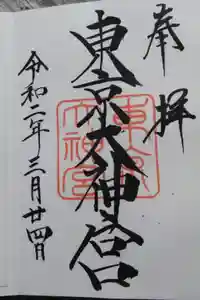 奉拝
東京大神宮
令和二年三月廿四日
東京
大神宮